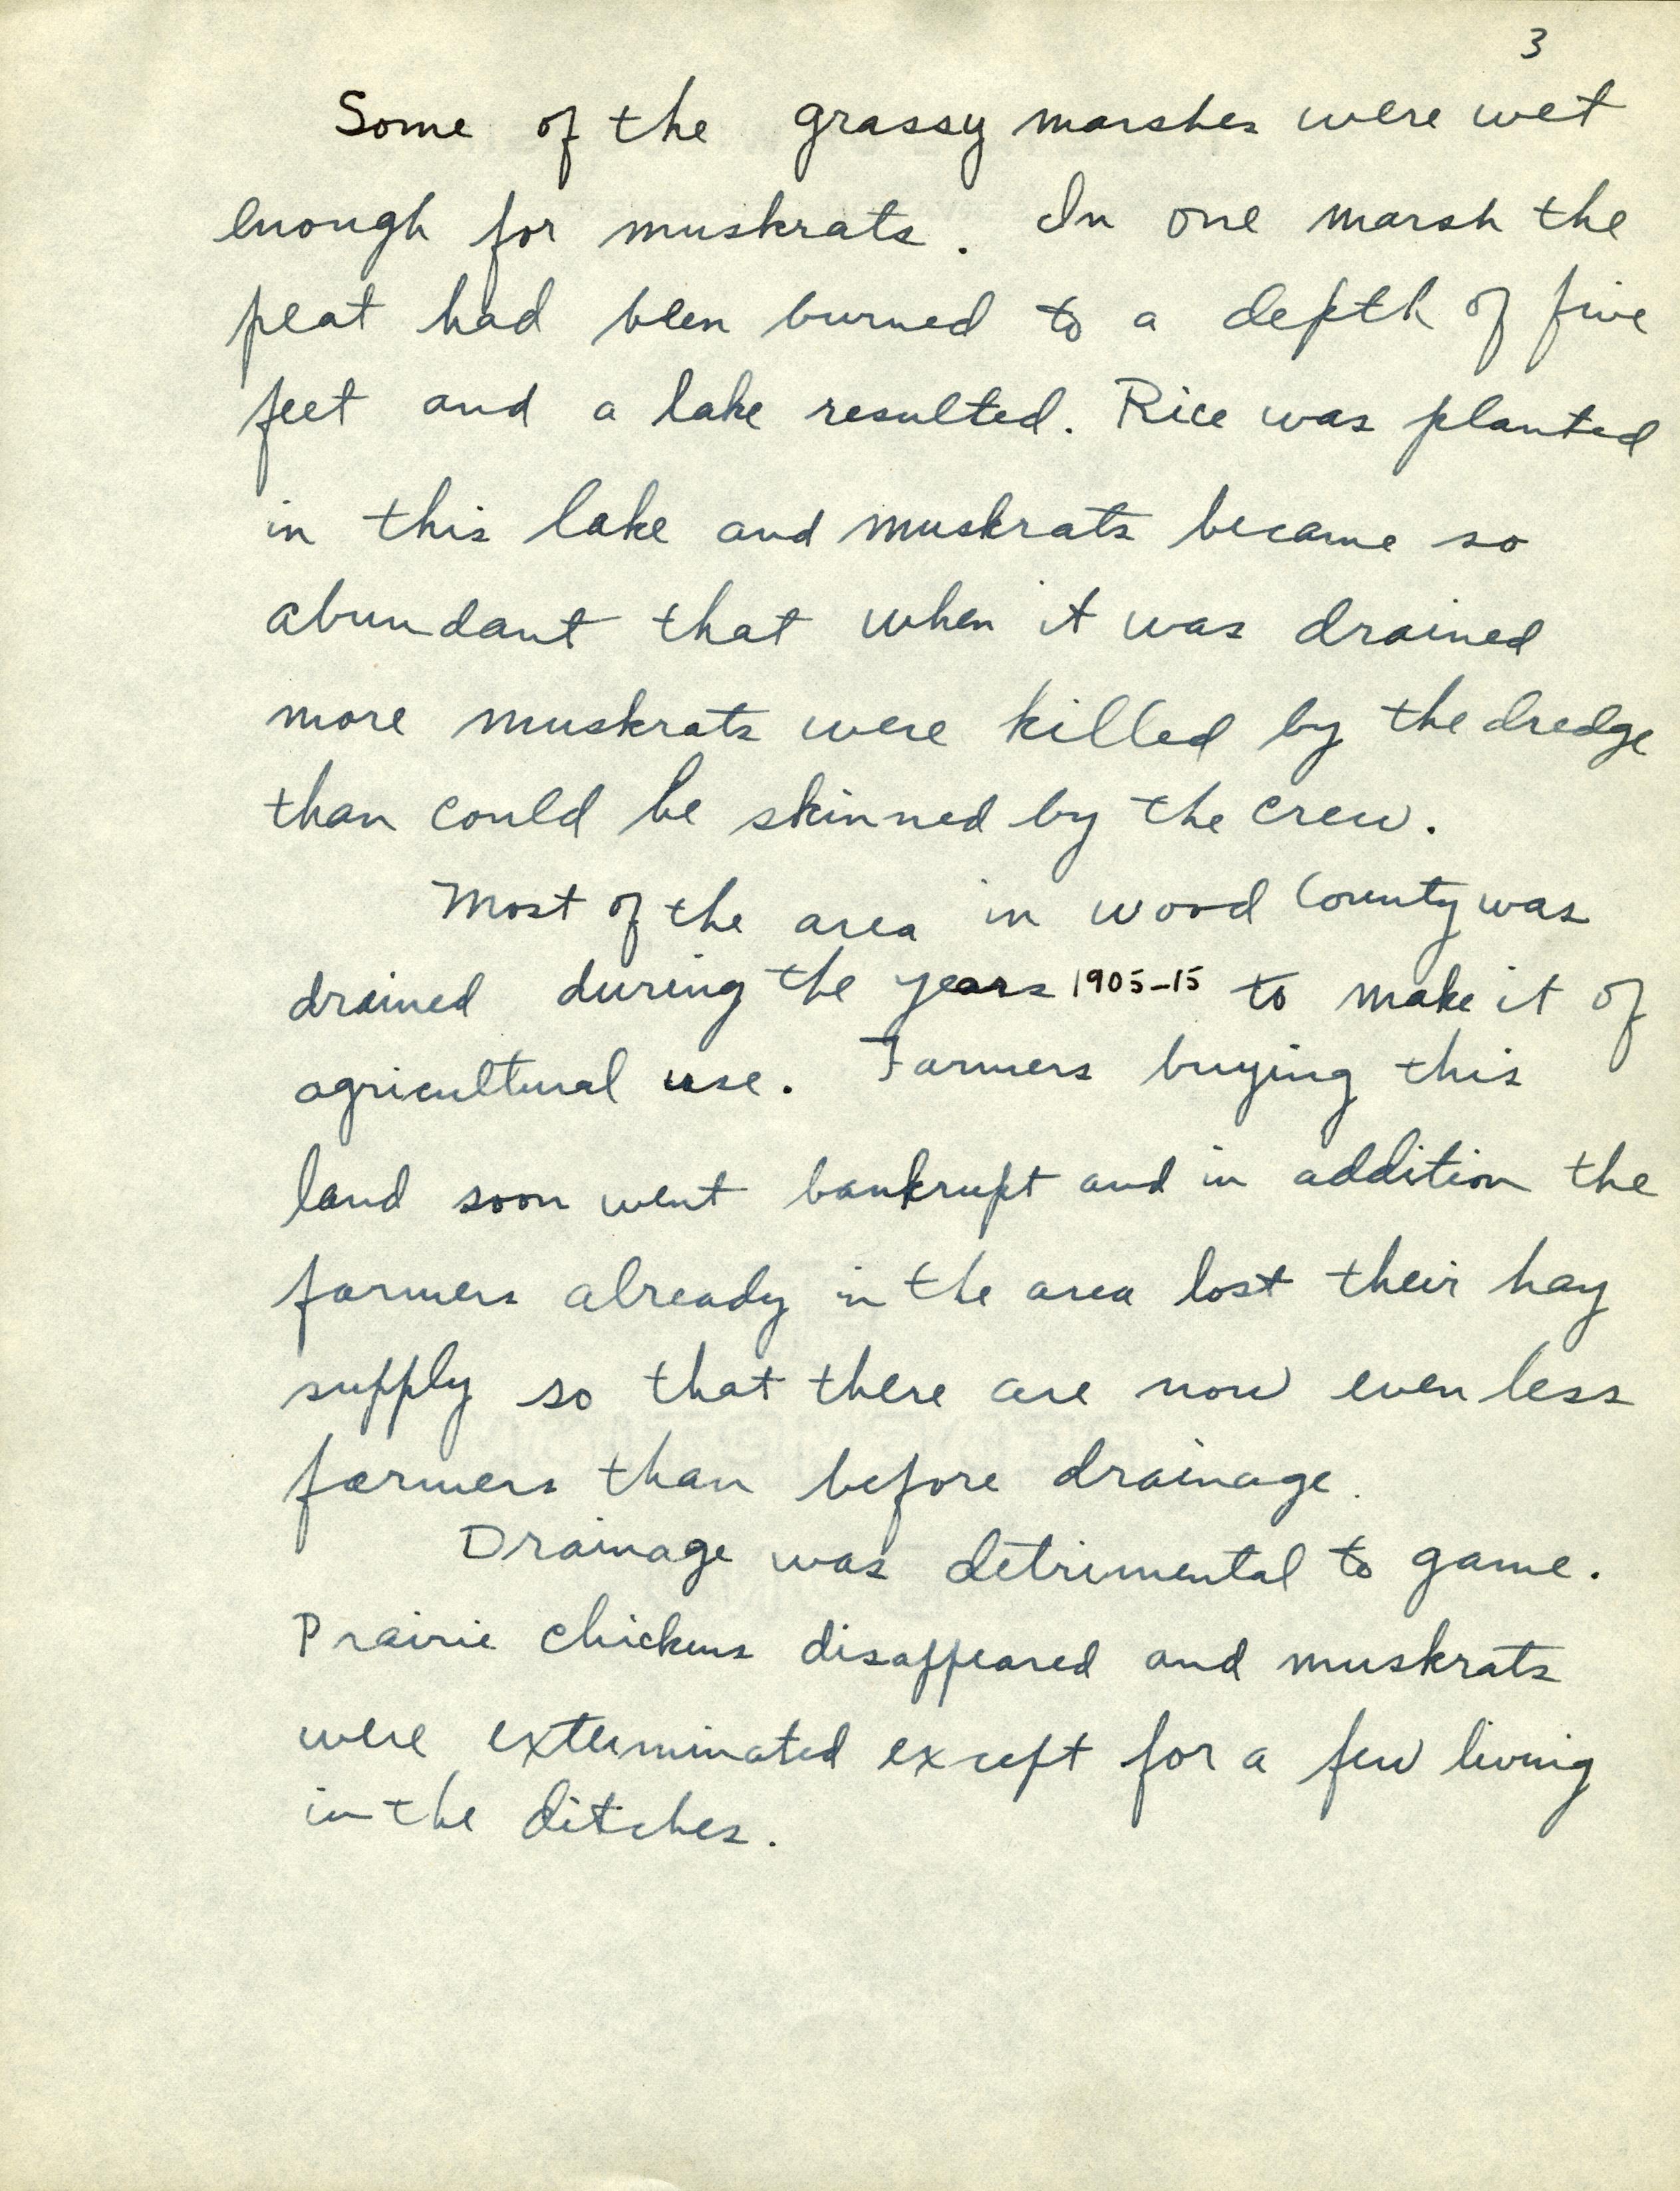 3
Some of the grassy marshes were wet
enough for muskrats. In one marsh the
peat had been burned to a depth of five
feet and a lake resulted. Rice was planted
in this lake and muskrats became so
abundant that when it was drained
more muskrats were killed by the dredge
than could be skinned by the crew.
Most of the area in Wood County was
drained during the years 1905-15 to make it of
agricultural use. Farmers buying this
land soon went bankrupt and in addition the
farmers already in the area lost their hay
supply so that there are now even less
farmers than before drainage.
Drainage was detrimental to game.
Prairie chickens disappeared and muskrats
were exterminated except for a few living
in the ditches.